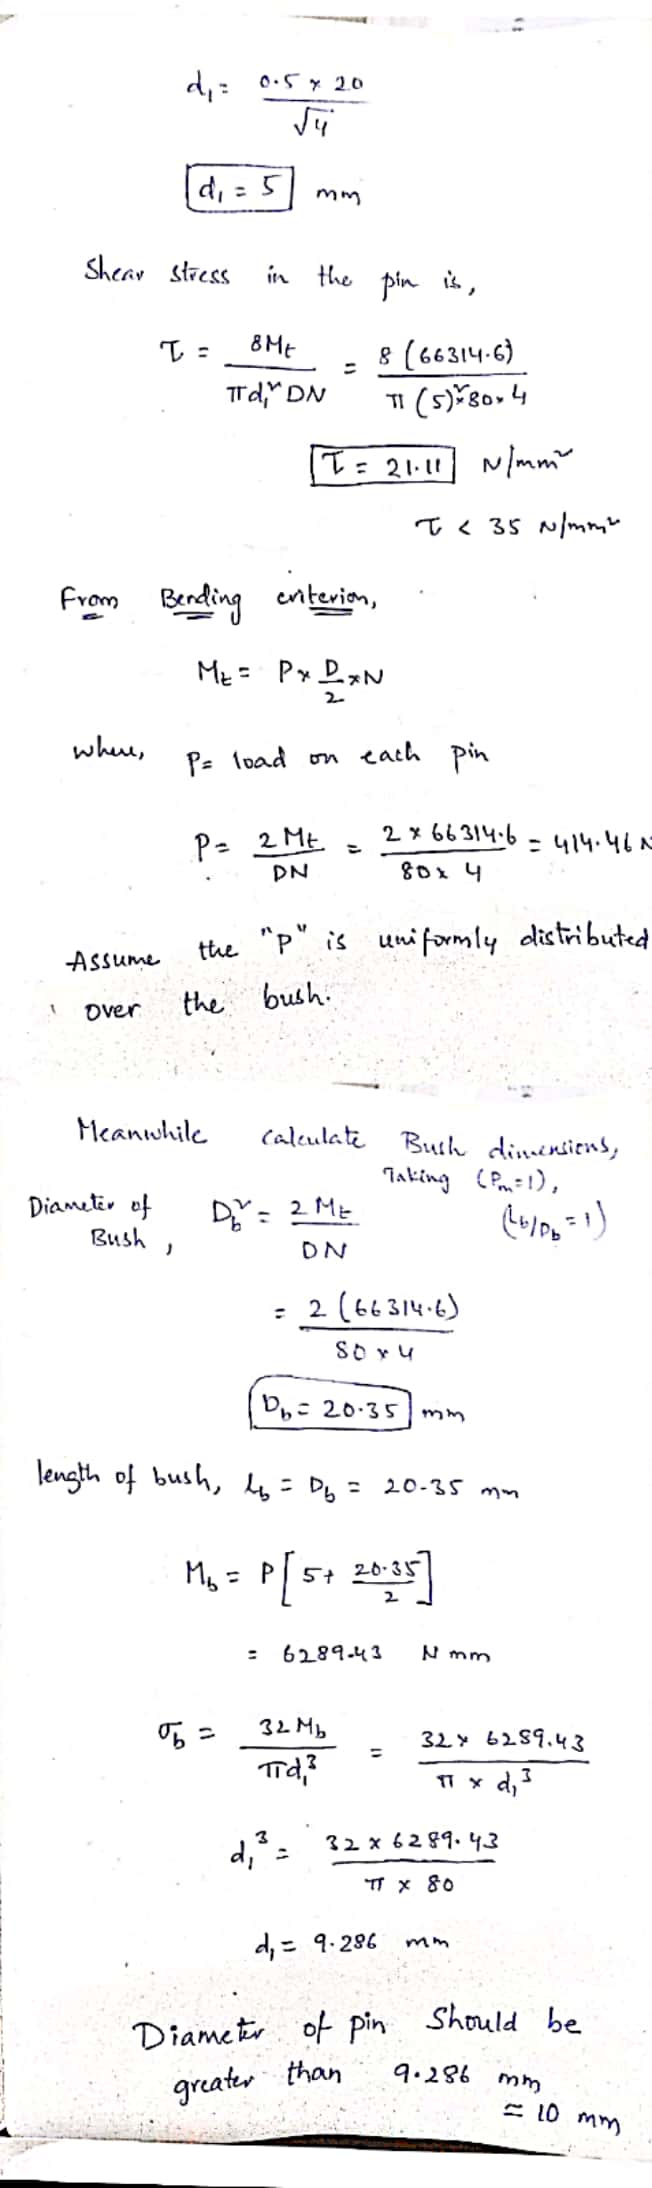 d₁ = 0.5 × 20 / √4
d₁ = 5 mm
Shear stress in the pin is,
τ = 8Mt / πd₁² DN = 8 (66314.6) / π (5)² × 80 × 4
τ = 21.11 N/mm²
τ < 35 N/mm²
From Bending criterion,
Mt = P × D/2 × N
where, P = load on each pin
P = 2 Mt / DN = 2 × 66314.6 / 80 × 4 = 414.46 N
Assume the "P" is uniformly distributed
over the bush.
Meanwhile calculate Bush dimensions,
Taking (Pm = 1),
(Lb/Db = 1)
Diameter of Bush, Db² = 2 Mt / DN
= 2 (66314.6) / 80 × 4
Db = 20.35 mm
length of bush, Lb = Db = 20.35 mm
Mb = P [5 + 20.35 / 2]
= 6289.43 N mm
σb = 32 Mb / πd₁³ = 32 × 6289.43 / π × d₁³
d₁³ = 32 × 6289.43 / π × 80
d₁ = 9.286 mm
Diameter of pin should be
greater than 9.286 mm
≈ 10 mm